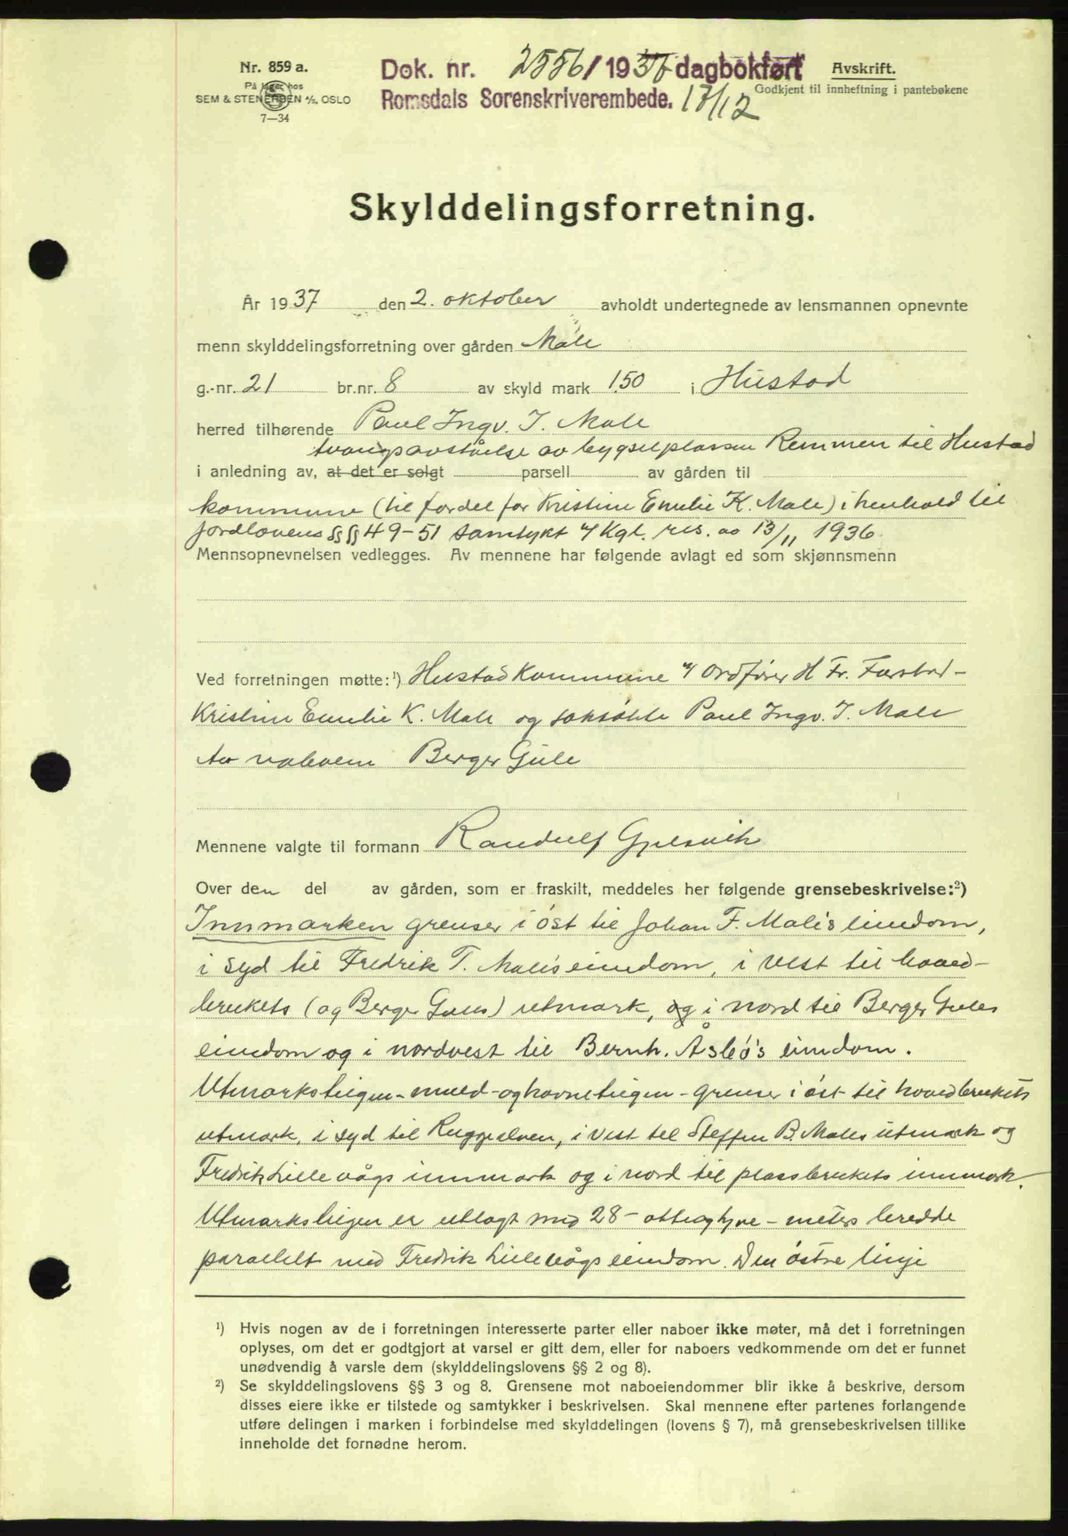 Nr. 859 a.
På lager hos
SEM & STENERSEN A/S, OSLO
7—34
Dok. nr. 2556/1937 dagbokført
Romsdals Sorenskriverembede. 17/12
Avskrift.
Godkjent til innheftning i pantebøkene
Skylddelingsforretning.
År 1937 den 2. oktober avholdt undertegnede av lensmannen opnevnte
menn skylddelingsforretning over gården Male
g.-nr. 21 br.nr. 8 av skyld mark 1.50 i Hustad
herred tilhørende Paul Ingv. I. Male
tvangsavståelse av bygselplassen Remmen til Hustad
i anledning av, at det er solgt parsell av gården til
kommune (til fordel for Kristine Emelie K. Male) i henhold til
jordlovens §§ 49-51 samtykt v/ Kgl. res. av 13/11 1936.
Mennsopnevnelsen vedlegges. Av mennene har følgende avlagt ed som skjønnsmenn
Ved forretningen møtte:¹) Hustad Kommune v/ Ordfører H Fr. Farstad-
Kristine Emelie K. Male og saksøkte Paul Ingv. I. Male
Av naboene Berger Gule
Mennene valgte til formann Randulf
Over den del av gården, som er fraskilt, meddeles her følgende grensebeskrivelse:²)
Innmarken grenser i øst til Johan F. Male's eiendom,
i syd til Fredrik T. Male's eiendom, i vest til hoved-
brukets (og Berger Gules) utmark, og i nord til Berger Gules
eiendom og i nordvest til Bernh. Åsbø's eiendom.
Utmarksteigen - mueld- og havneteigen - grenser i øst til hovedbrukets
utmark, i syd til, i vest til Steffen B. Males utmark og
Fredrik Lillevågs innmark og i nord til plassbrukets innmark.
Utmarksteigen er utlagt med 28 - otteogtyve - meters bredde
parallelt med Fredrik Lillevågs eiendom. Den østre linje
¹) Hvis nogen av de i forretningen interesserte parter eller naboer ikke møter, må det i forretningen
oplyses, om det er godtgjort at varsel er gitt dem, eller for naboers vedkommende om det er funnet
unødvendig å varsle dem (skylddelingslovens §§ 2 og 8).
²) Se skylddelingslovens §§ 3 og 8. Grensene mot naboeiendommer blir ikke å beskrive, dersom
disses eiere ikke er tilstede og samtykker i beskrivelsen. Skal mennene efter partenes forlangende
utføre delingen i marken i forbindelse med skylddelingen (lovens § 7), må grensebeskrivelsen tillike
inneholde det fornødne herom.